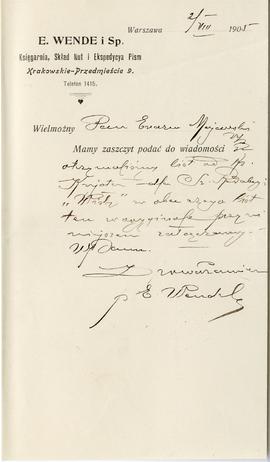 Warszawa 2/VIII 1905
E. WENDE i Sp.
Księgarnia, Skład Nut i Ekspedycya Pism
Krakowskie-Przedmieście 9.
Telefon 1415.
Wielmożny Pan Erazm Majewski
Mamy zaszczyt podać do wiadomości
otrzymaliśmy list od p.
"Wisły" w
ten w oryginale przy
niniejszem załączamy
WPanu.
Z poważaniem
p E Wende